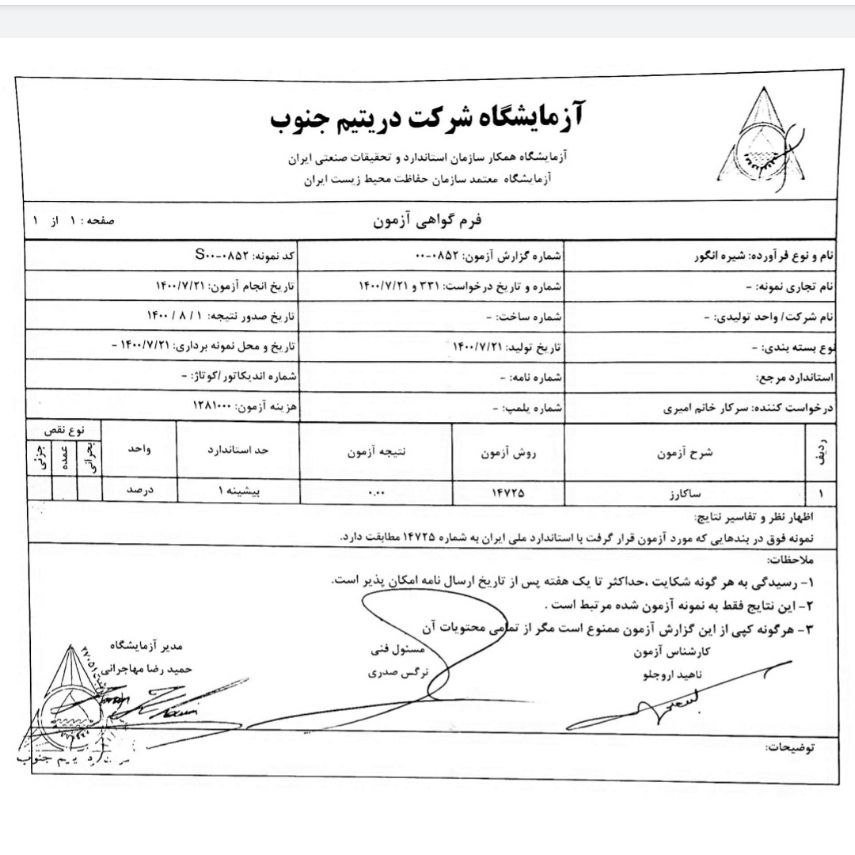 آزمایشگاه شرکت دریتیم جنوب
آزمایشگاه همکار سازمان استاندارد و تحقیقات صنعتی ایران
آزمایشگاه معتمد سازمان حفاظت محیط زیست ایران
فرم گواهی آزمون
صفحه: ۱ از ۱
نام و نوع فرآورده: شیره انگور
شماره گزارش آزمون: ۰۰-۰۸۵۲
کد نمونه: S۰۰-۰۸۵۲
نام تجاری نمونه: -
شماره و تاریخ درخواست: ۳۳۱ و ۱۴۰۰/۷/۲۱
تاریخ انجام آزمون: ۱۴۰۰/۷/۲۱
نام شرکت/ واحد تولیدی: -
شماره ساخت: -
تاریخ صدور نتیجه: ۱ / ۸ / ۱۴۰۰
نوع بسته بندی: -
تاریخ تولید: ۱۴۰۰/۷/۲۱
تاریخ و محل نمونه برداری: ۱۴۰۰/۷/۲۱ -
استاندارد مرجع:
شماره نامه: -
شماره اندیکاتور/کوتاژ: -
درخواست کننده: سرکار خانم امیری
شماره پلمپ: -
هزینه آزمون: ۱۲۸۱۰۰۰
ردیف
شرح آزمون
روش آزمون
نتیجه آزمون
حد استاندارد
واحد
نوع نقص
بحرانی
عمده
جزئی
۱
ساکارز
۱۴۷۲۵
۰.۰۰
بیشینه ۱
درصد
اظهار نظر و تفاسیر نتایج:
نمونه فوق در بندهایی که مورد آزمون قرار گرفت با استاندارد ملی ایران به شماره ۱۴۷۲۵ مطابقت دارد.
ملاحظات:
۱- رسیدگی به هر گونه شکایت ،حداکثر تا یک هفته پس از تاریخ ارسال نامه امکان پذیر است.
۲- این نتایج فقط به نمونه آزمون شده مرتبط است .
۳- هرگونه کپی از این گزارش آزمون ممنوع است مگر از تمامی محتویات آن
کارشناس آزمون
ناهید اروجلو
مسئول فنی
نرگس صدری
مدیر آزمایشگاه
حمید رضا مهاجرانی
توضیحات: